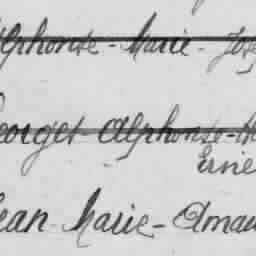 Alphonse - Marie - Jos
Georges Alphonse - H
Erne
Jean Marie - Aman